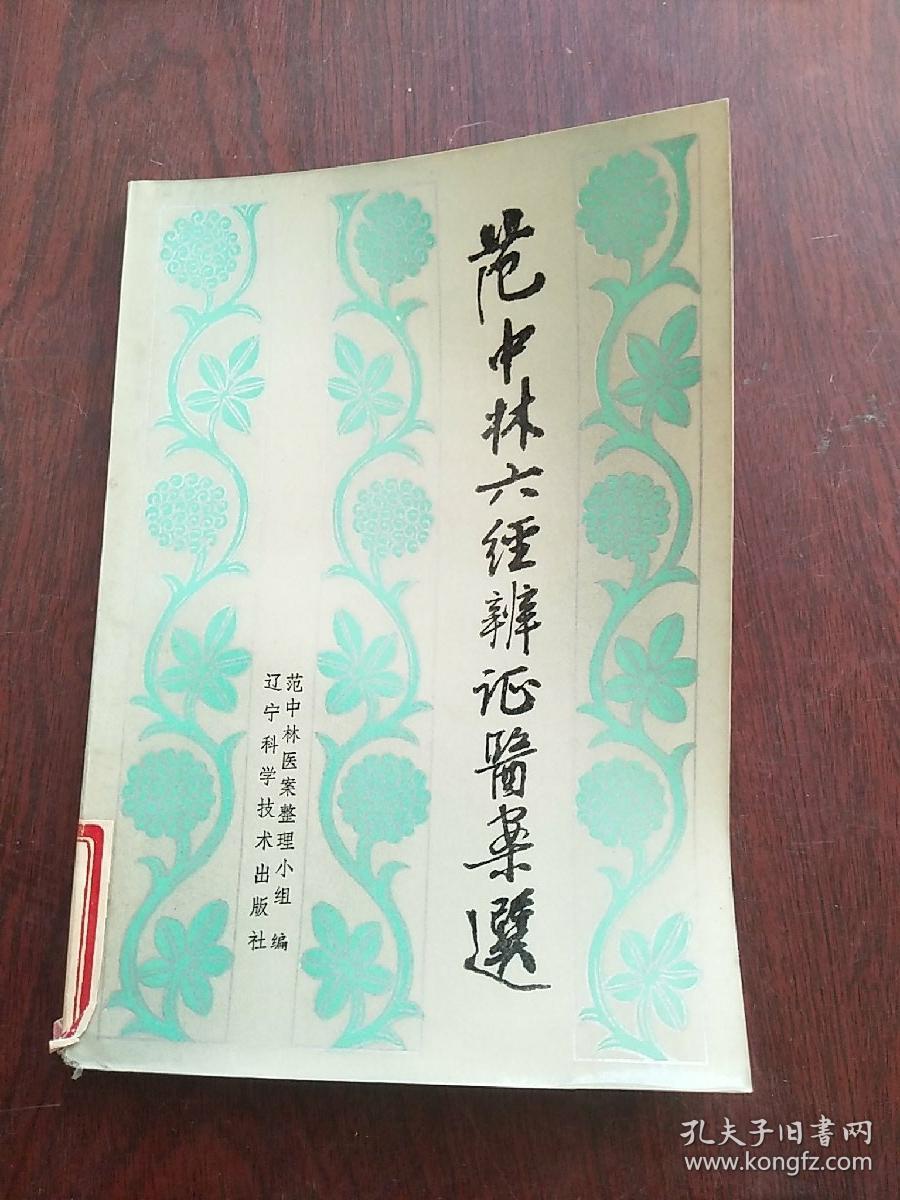 范中林六經辨证醫案選
范中林医案整理小组 编
辽宁科学技术出版社
孔夫子旧書网
www.kongfz.com